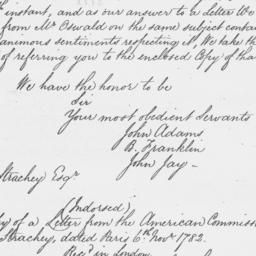 instant, and as our answer to a Letter We
from Mr. Oswald on the same subject contai
animous sentiments respecting it, We take th
of referring you to the enclosed Copy of tha
We have the honor to be
Sir
Your most obedient Servants
John Adams
B. Franklin
John Jay —
Strachey Esqr
(Endorsed)
y of a Letter from the American Commiss
Strachey, dated Paris 6th Novr 1782.
Recd in London